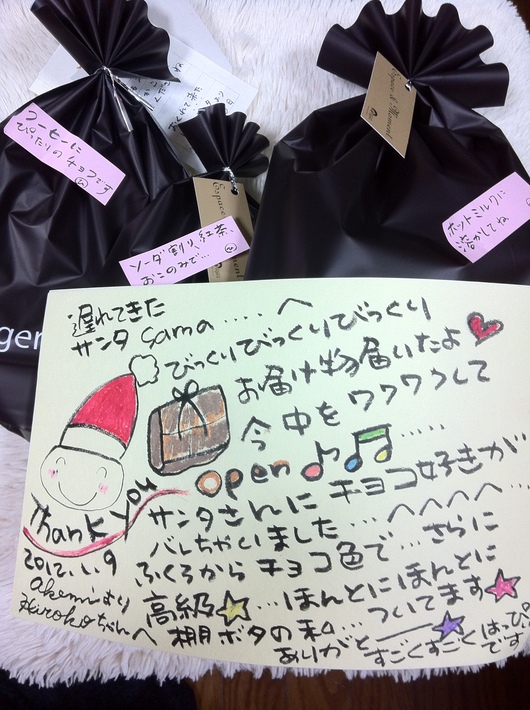 コーヒーに
ぴったりのチョコです
ソーダ割り、紅茶、
おこのみで…
ホットミルクに
溶かしてね
遅れてきた
サンタ sama ・・・・・ へ
びっくりびっくりびっくり
お届け物届いたよ
今 中をワクワクして
open ・・・・・
サンタさんに チョコ好きが
バレちゃいました… へへへへ…
ふくろから チョコ色で… さらに
高級 …ほんとにほんとに
棚ボタの私… ついてます
ありがと
すごくすごく はっぴ
です
Thank you
2012.1.9
akemiより
Hirokoちゃんへ